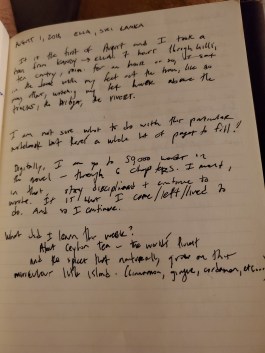 August 1, 2016 ELLA, SRI LANKA
It is the first of August and I took a
train from Kandy → Ella 7 hours through hills,
tea country, rain. For an hour or so, I sat
in the door with my feet out the train, like so
many others, writing my left beside above the
tracks, the bridges, the rivers.
I am not sure what to do with this particular
notebook but there a whole lot of pages to fill!!
Digitally, I am up to 59,000 words in
the novel – through 6 chapters. I must,
in that, stay disciplined + continue to
write. It is what I came/left/lived to
do. And so I continue.
What did I learn this week?
About Ceylon tea – the world's finest
and the spices that naturally grow on this
marvelous little island – (cinnamon, ginger, cardamom, etc...)